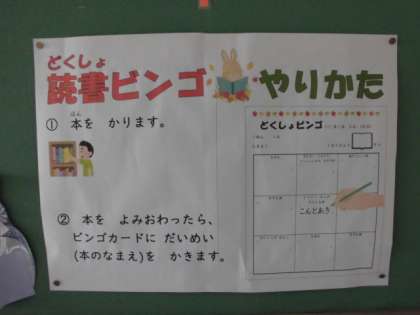 どくしょ
読書ビンゴ やりかた
ほん
① 本を かります。
② 本を よみおわったら、
ビンゴカードに だいめい
(本のなまえ)を かきます。
どくしょビンゴ
こんとあき